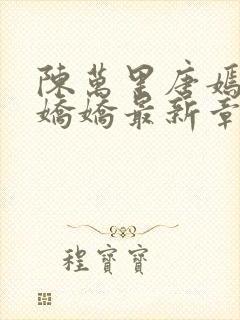 陳萬里唐嫣
嬌嬌最新章
程寶寶